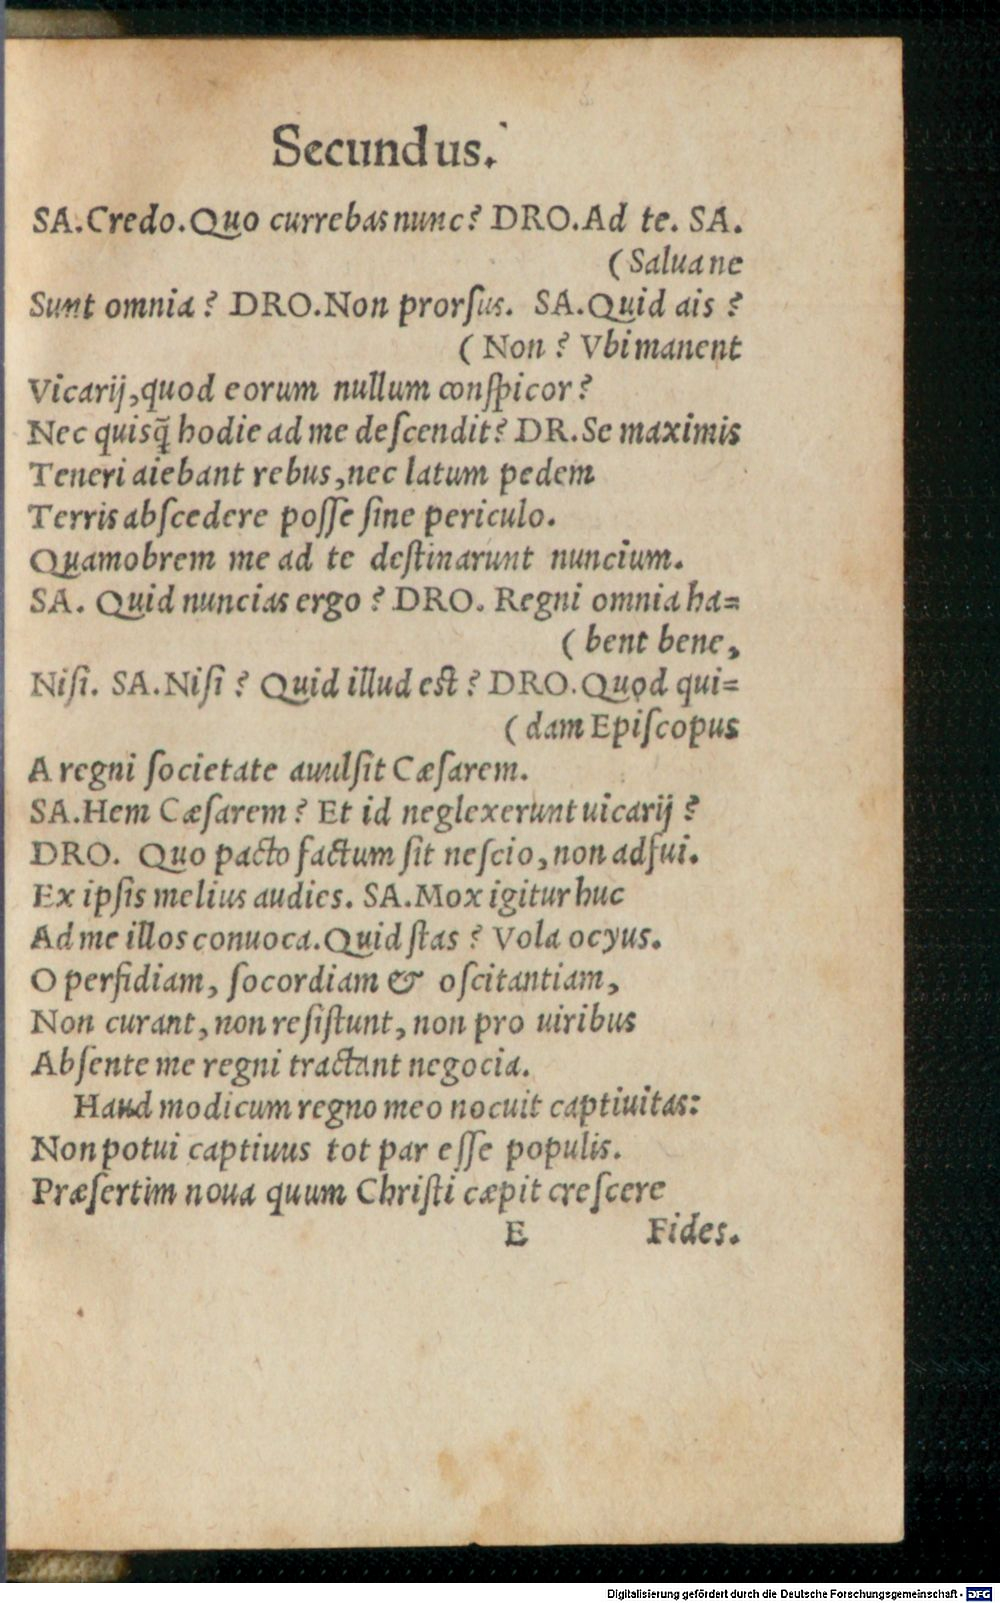 Secundus.
SA.Credo.Quo currebas nunc? DRO.Ad te. SA.
(Saluane
Sunt omnia? DRO.Non prorſus. SA.Quid ais?
(Non? Vbi manent
Vicarij,quod eorum nullum conſpicor?
Nec quisq̃ hodie ad me deſcendit? DR.Se maximis
Teneri aiebant rebus,nec latum pedem
Terris abſcedere poſſe ſine periculo.
Quamobrem me ad te deſtinarunt nuncium.
SA. Quid nuncias ergo? DRO. Regni omnia ha=
(bent bene,
Niſi. SA.Niſi? Quid illud est? DRO.Quod qui=
(dam Epiſcopus
A regni ſocietate auulſit Cæſarem.
SA.Hem Cæſarem? Et id neglexerunt uicarij?
DRO. Quo pacto factum ſit neſcio,non adfui.
Ex ipſis melius audies. SA.Mox igitur huc
Ad me illos conuoca.Quid ſtas? Vola ocyus.
O perfidiam, ſocordiam & oſcitantiam,
Non curant,non reſiſtunt,non pro uiribus
Abſente me regni tractant negocia.
Haud modicum regno meo nocuit captiuitas:
Non potui captiuus tot par eſſe populis.
Præſertim noua quum Chriſti cæpit creſcere
E Fides.
Digitalisierung gefördert durch die Deutsche Forschungsgemeinschaft - DFG